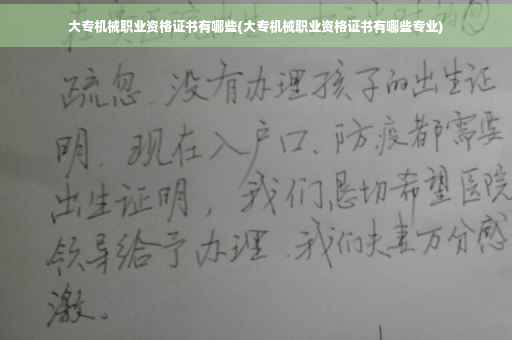 大专机械职业资格证书有哪些(大专机械职业资格证书有哪些专业)
疏忽、没有办理孩子的出生证
明、现在入户口、防疫都需要
出生证明，我们恳切希望医院
领导给予办理、我们夫妻万分感
激。